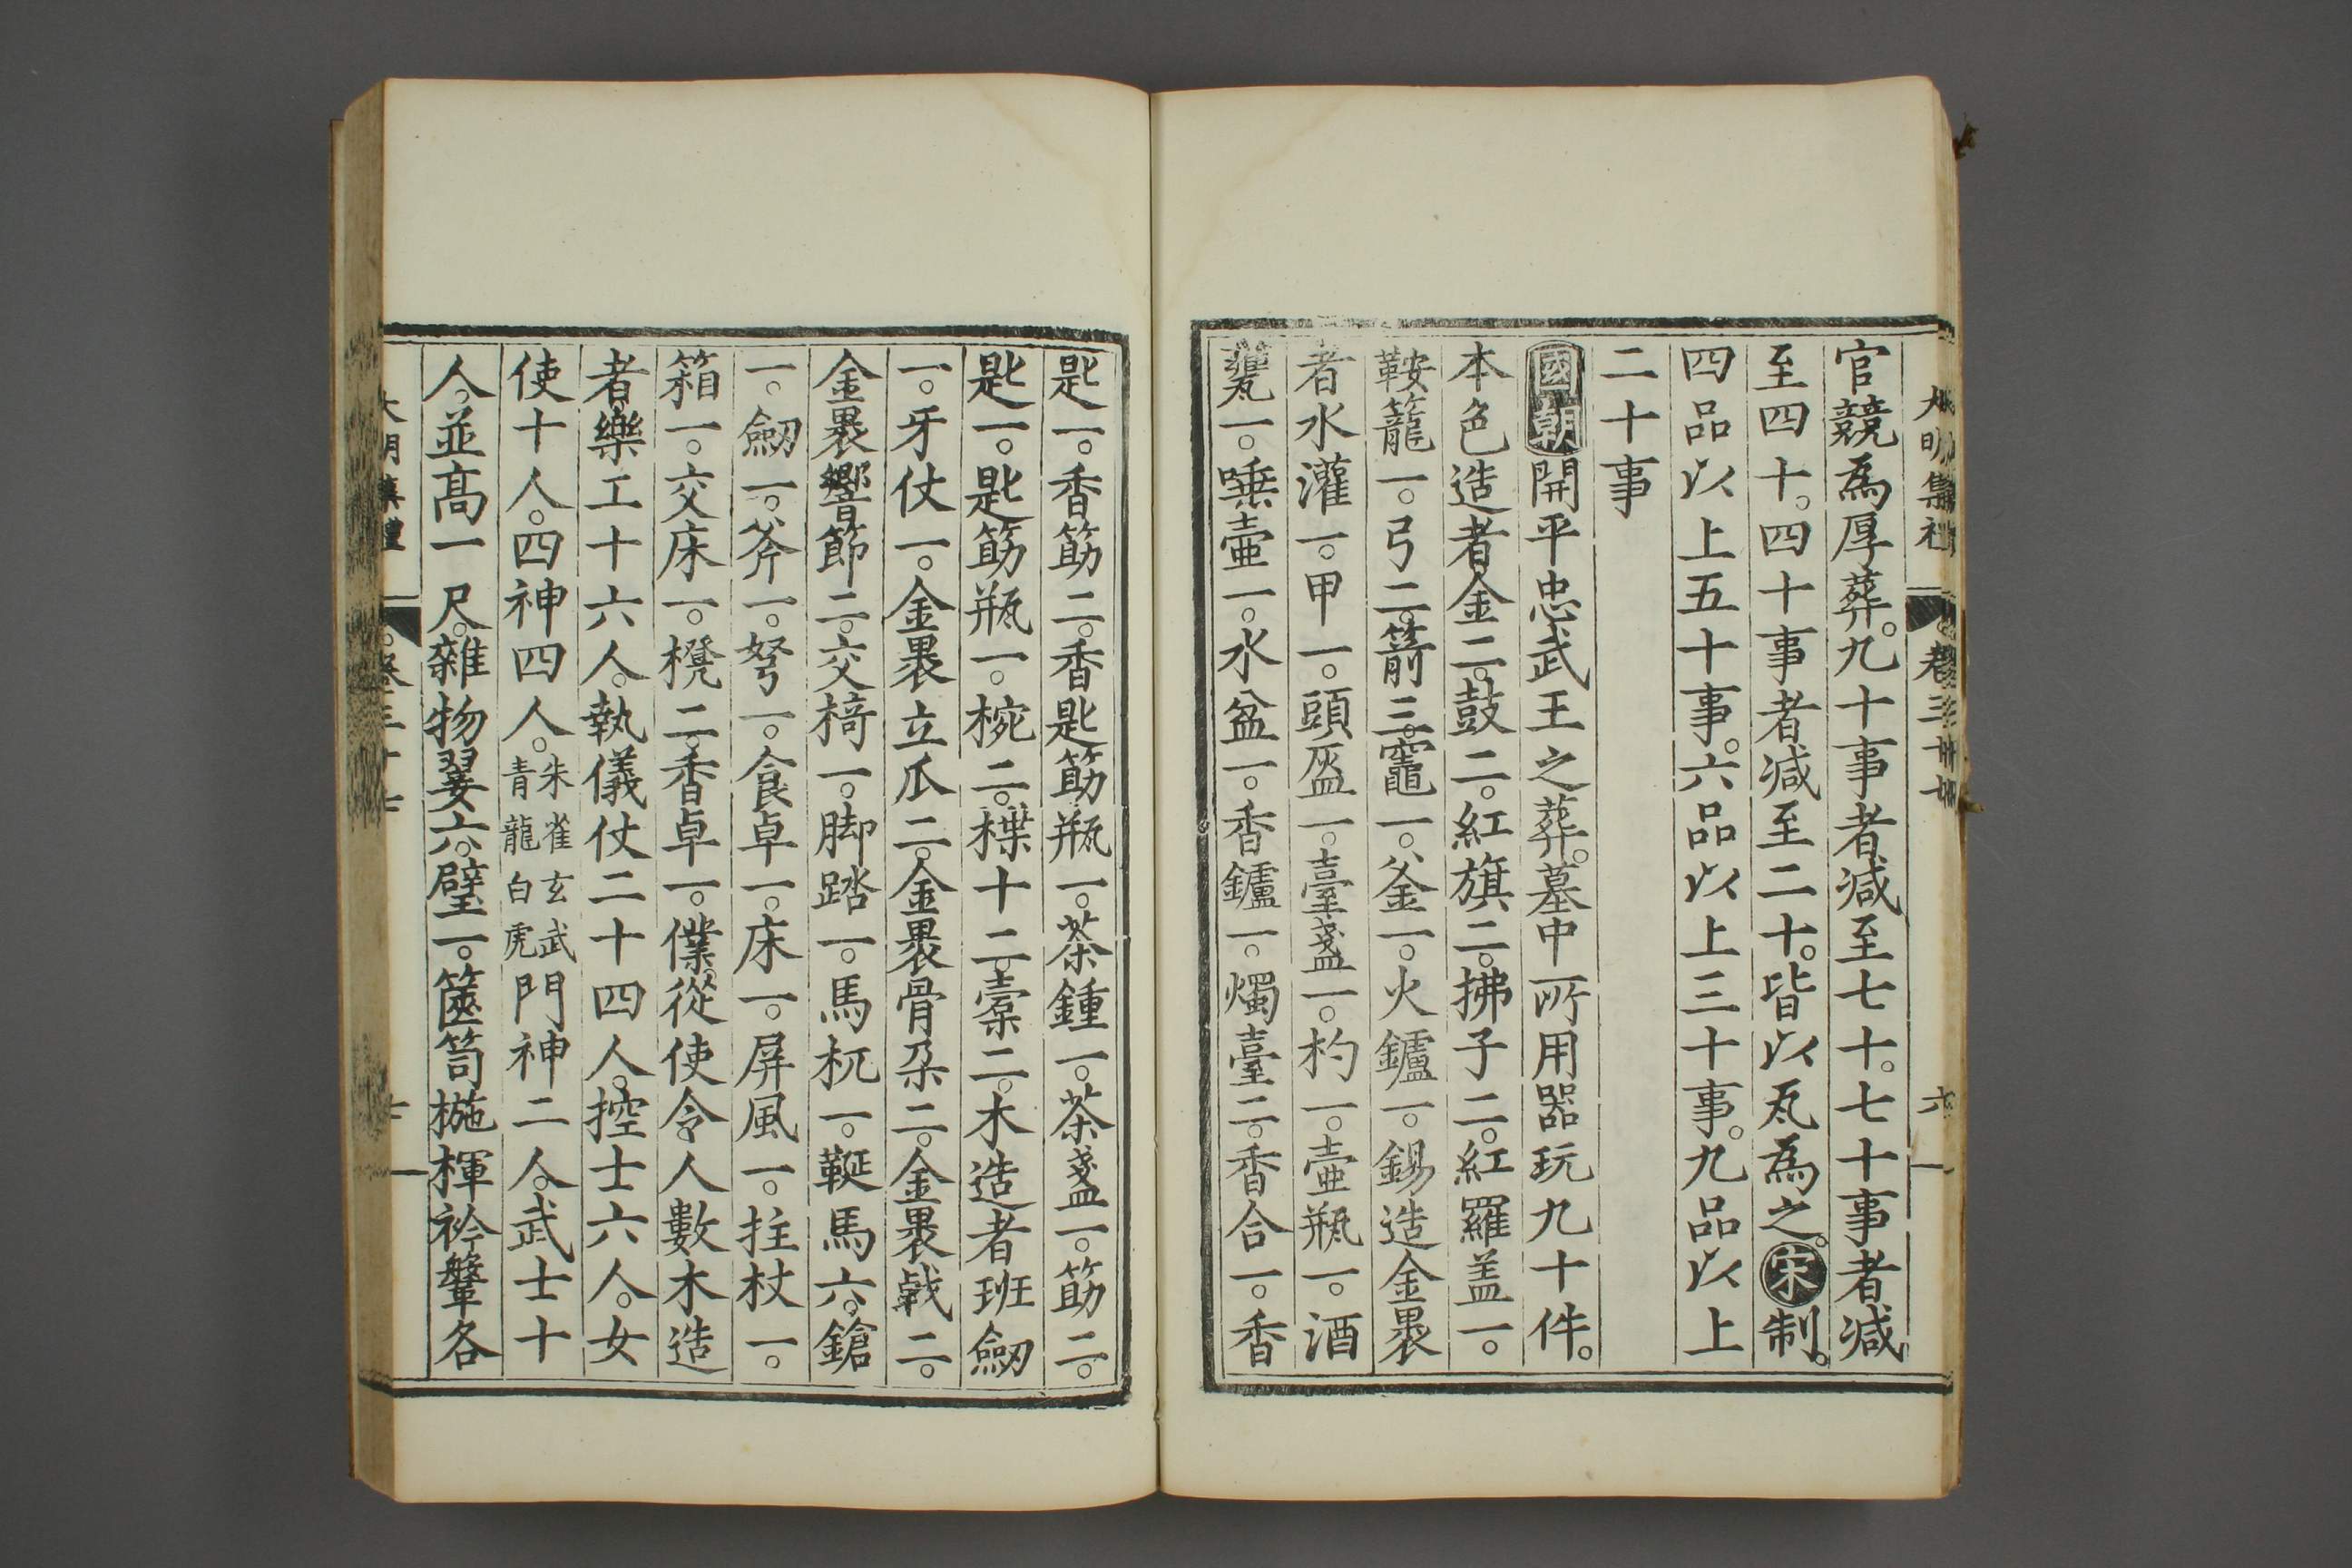 官競為厚葬。九十事者减至七十。七十事者减
至四十。四十事者减至二十。皆以瓦為之。宋制。
四品以上五十事。六品以上三十事。九品以上
二十事
國朝開平忠武王之葬。墓中所用器玩九十件。
本色造者金二。鼓二。紅旗二。拂子二。紅羅盖一。
鞍籠一。弓二。箭三。竈一。釜一。火鑪一。錫造金褁
者水灌一。甲一。頭盔一。臺盞一。杓一。壷瓶一。酒
甕一。唾壷一。水盆一。香鑪一。燭臺二。香合一。香
匙一。香筯二。香匙筯瓶一。茶鍾一。茶盞一。筯二。
匙一。匙筯瓶一。椀二。楪十二。橐二。木造者班劒
一。牙仗一。金褁立瓜二。金褁骨朶二。金褁戟二。
金褁響節二。交椅一。脚踏一。馬杌一。鞍馬六。鎗
一。劒一。斧一。弩一。食卓一。床一。屏風一。拄杖一。
箱一。交床一。櫈二。香卓一。僕從使令人數木造
者樂工十六人。執儀仗二十四人。控士六人。女
使十人。四神四人。朱雀玄武青龍白虎門神二人。武士十
人。並髙一尺。雜物翣六。璧一。篋笥椸楎衿鞶各
大明集禮 卷三十七